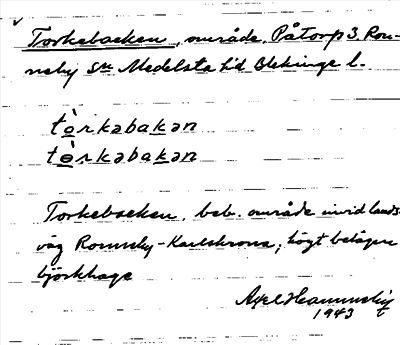 Torkebacken, område, Påtorp 3. Ron-
neby sn Medelsta hd Blekinge l.
tòrkəbakən
tòrkəbakən
Torkebacken. beb. område invid lands-
väg Ronneby-Karlskrona; högt belägen
björkhage
Axel
1943